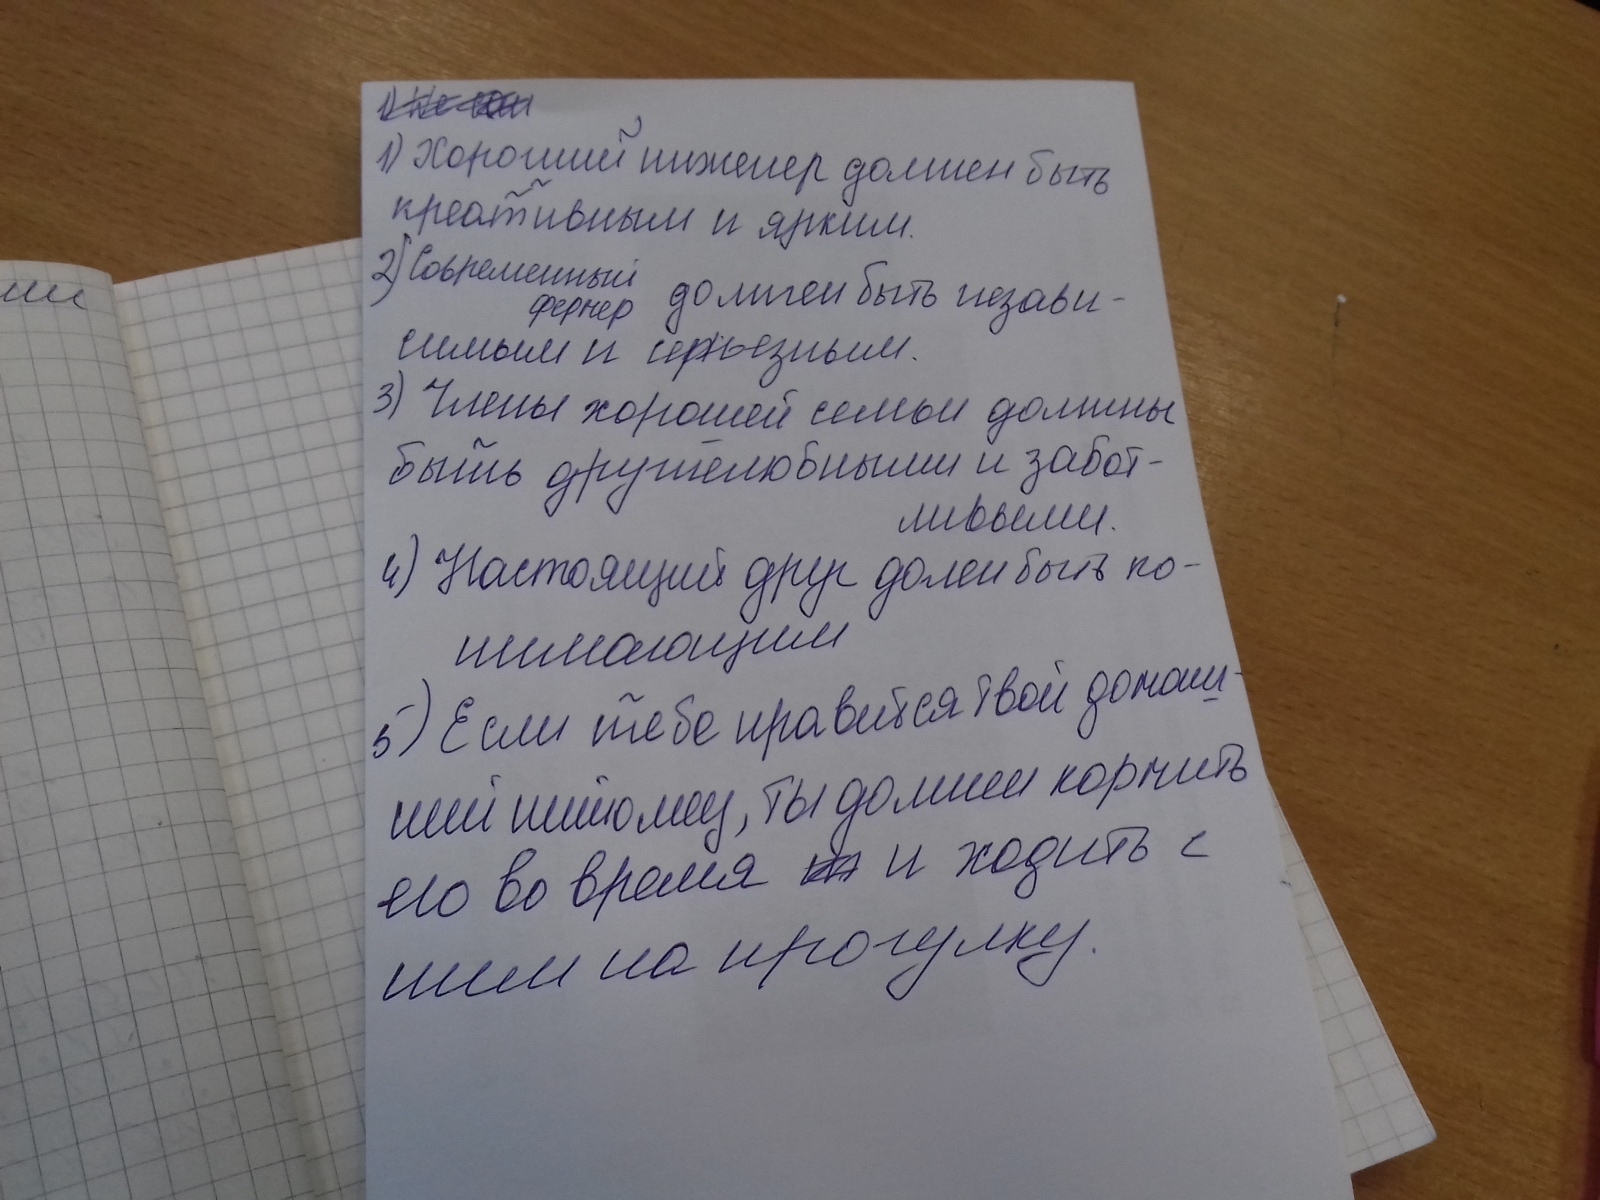 1) Хороший инженер должен быть
креативным и ярким.
2) Современный
фермер должен быть незави-
симым и серьезным.
3) Члены хорошей семьи должны
быть дружелюбными и забот-
ливыми.
4) Настоящий друг долен быть по-
нимающим
5) Если тебе нравится твой домаш-
ний питомец, ты должен кормить
его во время и ходить с
ним на прогулку.